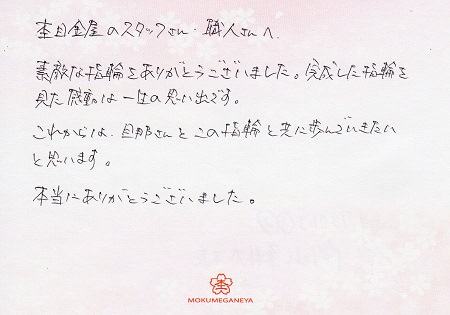 杢目金屋のスタッフさん・職人さんへ
素敵な指輪をありがとうございました。完成した指輪を
見た感動は一生の思い出です。
これからは、旦那さんとこの指輪と共に歩んでいきたい
と思います。
本当にありがとうございました。
MOKUMEGANEYA